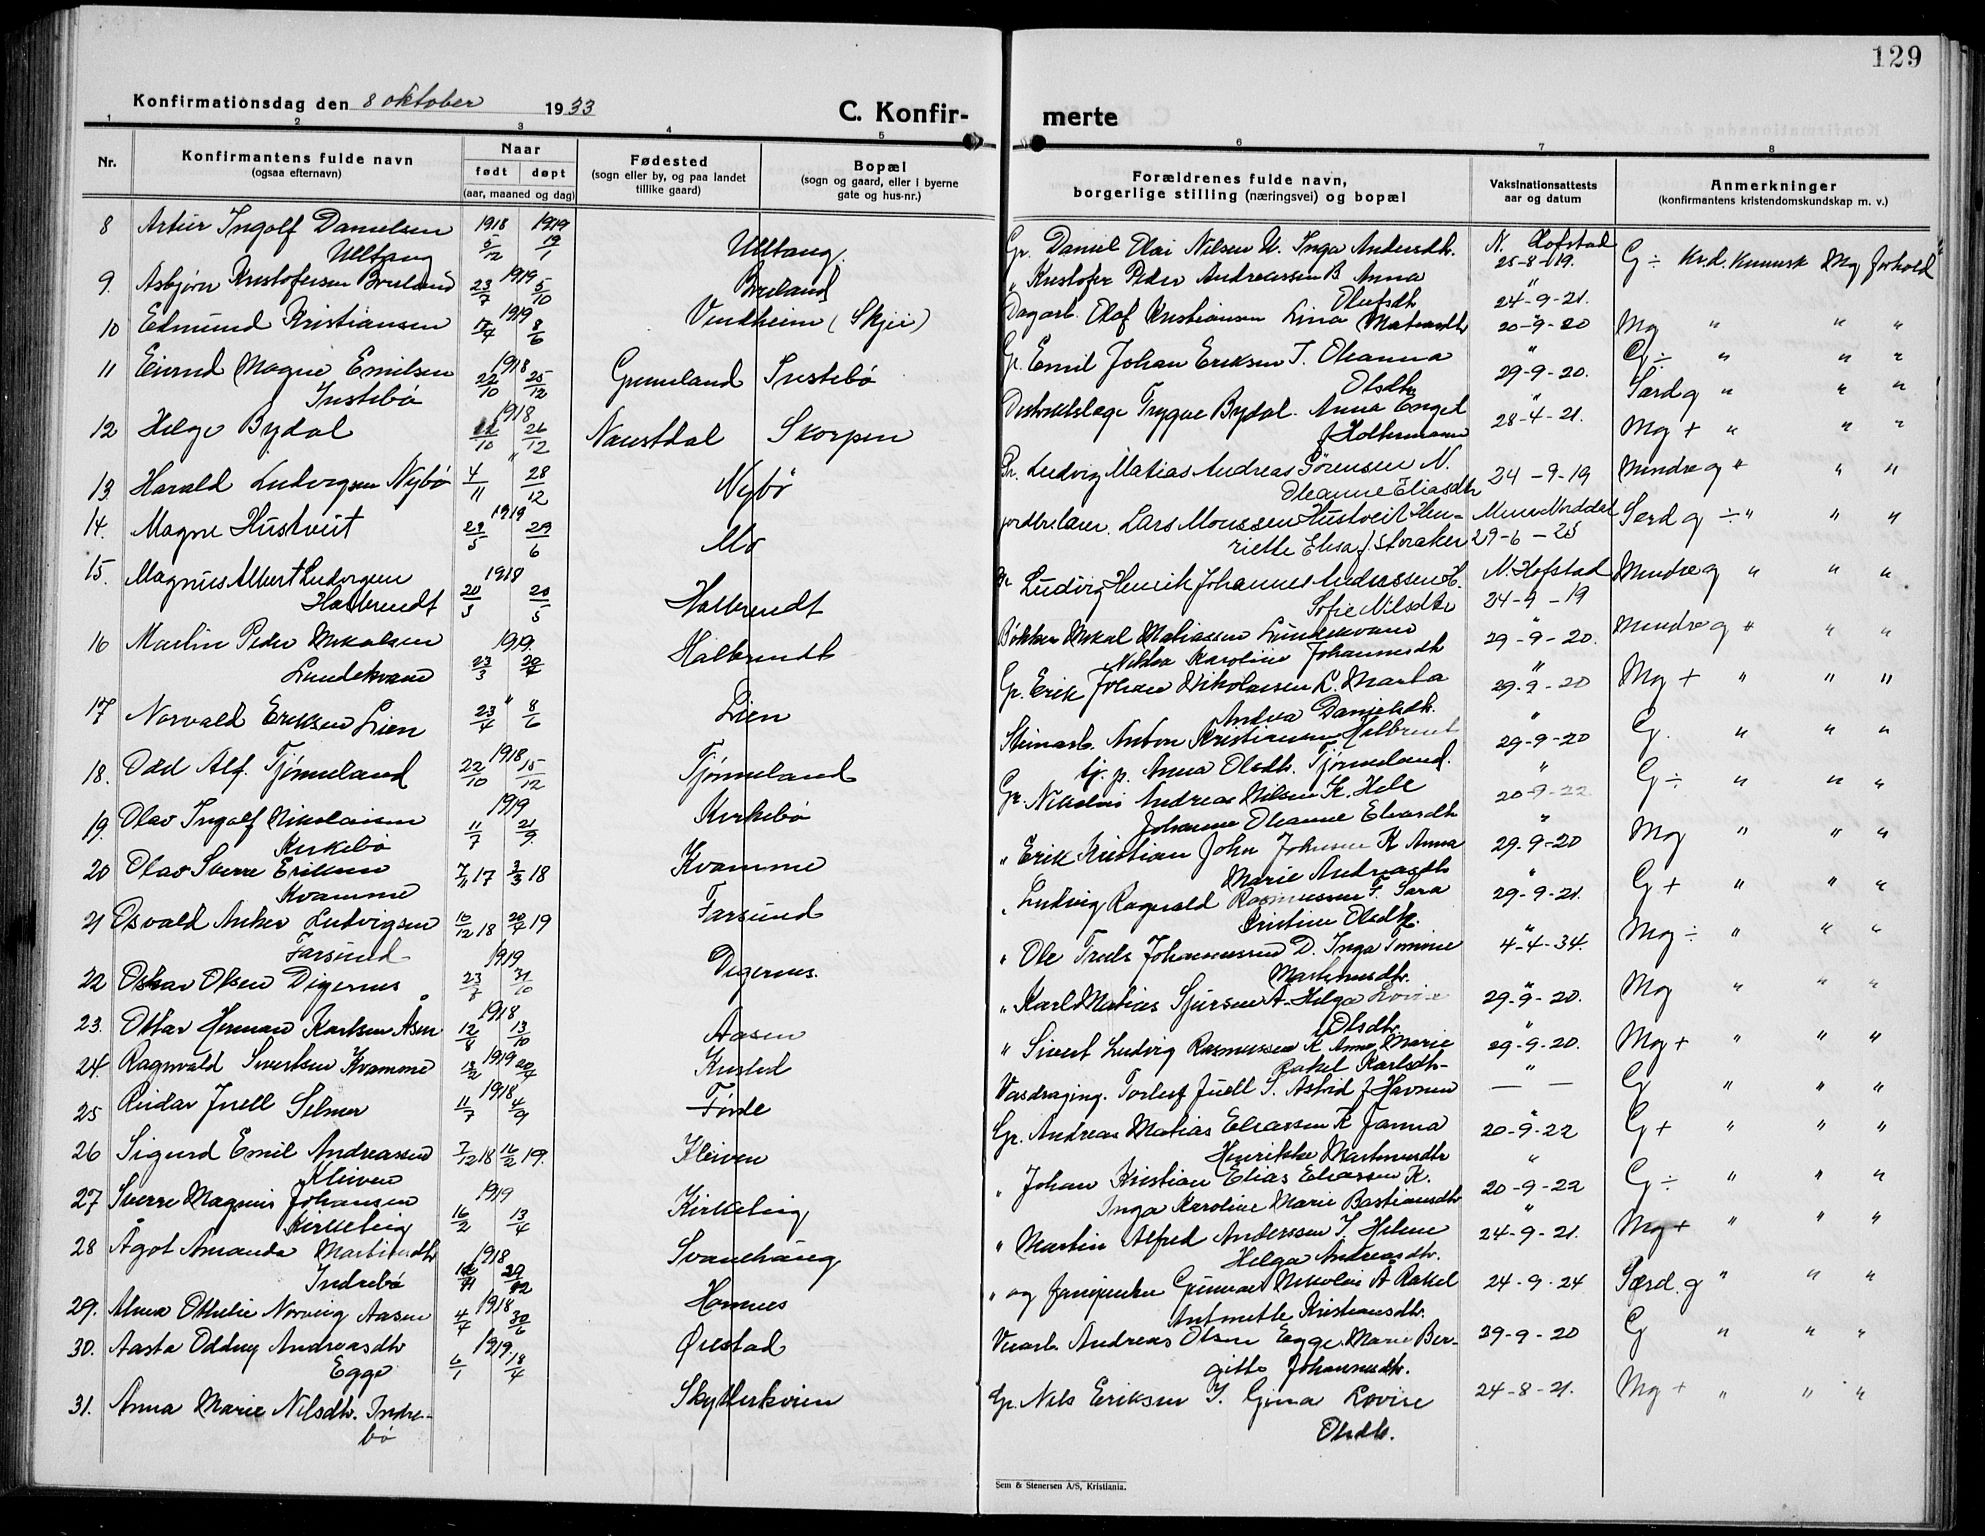 129
Konfirmationsdag den 8 oktober 1933
C. Konfir-
merte
1 2 3 4 5 6 7 8
Nr.
Konfirmantens fulde navn
(ogsaa efternavn)
Naar
født døpt
(aar, maaned og dag)
Fødested
(sogn eller by, og paa landet
tillike gaard)
Bopæl
(sogn og gaard, eller i byerne
gate og hus-nr.)
Forældrenes fulde navn,
borgerlige stilling (næringsvei) og bopæl
Vaksinationsattests
aar og datum
Anmerkninger
(konfirmantens kristendomskundskap m. v.)
8 Artur Ingolf Danielsen 1918 1919
Ulltang 5/12 19/1 Ulltang. Gr. Daniel Olai Nilsen U. Inga Andersdtr. N. Hofstad 25-8-19. G ÷ Kr.d. kunnsk Mg forhold
9. Asbjørn Kristofersen Breland 1919 23/7 5/10 Breland " Kristofer Peder Andreassen B. Anna
Olufsdtr " 24-9-21.
10 Edmund Kristiansen 1919 17/4 8/6 Vindheim (Skjei) Dagarb. Olaf Kristiansen Lina Matiasdtr 20-9-20 Mg " " "
11 Eivind Magne Emilsen 1918
Instebø 22/10 25/12 Grimeland Instebø Gr. Emil Johan Eriksen I. Oleanna
Olsdtr " 29-9-20. G ÷ " " "
12 Helge Bydal 1918 /10 26/12 Naustdal Skorpen Distriktslæge Trygve Bydal. Anna Engel
f Holtermann " 28-4-21. Særd g " " "
Mg + " " "
13 Harald Ludvigsen Nybø 4/11 " 28/12 Nybø Gr. Ludvig Matias Andreas Sörensen N.
Oleanne Eliasdtr 24-9-19 Mindre g " " "
14. Magne Hustveit 1919 29/5 29/6 Mo jordbr.lærer. Lars Monssen Hustveit Hen-
riette Elisa f. Storaker 29-6-25 Særd g ÷ " " "
15. Magnus Albert Ludvigsen 1918
Halbrendt 20/3 20/5 Halbrendt Gr Ludvig Henrik Johannes Andreassen H.
Sofie Nilsdtr N. Hofstad 24-9-19 Mindre g " " "
16 Martin Peder Mikalsen 1919.
Lundekvam 23/3 20/4 Halbrendt Bökker Mikal Matiassen Lundekvam
Nikka Karoline Johannesdtr " 29-9-20. Mindre g " " "
17 Norvald Eriksen Lien 23/4 " 8/6 Lien Gr. Erik Johan Nikolaisen L. Marta
Andrea Danielsdtr. " 29-9-20 Mg + " " "
18. Odd Alf. Tjønneland 1918 22/10 15/12 Tjønneland Steinarb. Anton Kristiansen Halbrendt
tj. p. Anna Olsdtr. Tjønneland. " 29-9-20 G. " " "
19. Olav Ingolf Nikolaisen 1919
Kirkebø 11/7 21/9. Kirkebø Gr. Nikolai Andreas Nilsen K. Hele
Johanna Oleanne Elvardtr " 20-9-22 G ÷ " " "
20 Olav Sverre Eriksen
Kvamme 7/11 17 3/3 18 Kvamme " Erik Kristian John Johnsen K Anna
Marie Andreasdtr " 29-9-20 Mg " " "
21 Osvald Anker Ludvigsen
Farsund 10/12 18 20/4 19 Farsund " Ludvig Ragnvald Rasmussen F. Sara
Kristine Olsdtr. " 29-9-21. G + " " "
22 Oskar Olsen Digernes 1919 23/8 31/10 Digernes. " Ole Truls Johannessen D. Inga Tomine
Martinusdtr. " 4-4-34. Mg ÷ " " "
23. Ottar Herman Karlsen Åsen 1918 12/8 13/10 Aasen " Karl Matias Sjursen A. Helga Lovise
Olsdtr. " 29-9-20. Mg " " "
24. Ragnvald Sivertsen Kvamme 1919 18/2 20/4 Kusted " Sivert Ludvig Rasmussen K Anna Marie
Rakel Karlsdtr. " 29-9-20. Mg + " " "
25 Reidar Juell Selmer 1918 11/7 4/9 Førde Vasdraging. Torleif Juell S. Astrid f Havnen " — — G " " "
26 Sigurd Emil Andreassen
Kleiven 7/12 18 16/2 19. Kleiven Gr. Andreas Matias Eliassen K Janna
Henrikke Martinusdtr " 20-9-22 G + " " "
27 Sverre Magnus Johansen 1919
Kirkeling 16/2 13/4 Kirkeling " Johan Kristian Elias Eliassen K.
Inga Karoline Marie Bastiansdtr " 20-9-22 G ÷ " " "
28 Ågot Amanda Martinsdtr 1918
Indrebø 29/12 Svanehaug " Martin Alfred Anderssen I. Helene
Helga Andreasdtr. " 24-9-21. Mg + " " "
29. Alma Othelie Norveig Aasen 1918 4/4 30/6 Hornnes " og fargerier Gunnar Nikolai A Rakel
Antonette Kristiansdtr. 24-9-24 Særd. g " " "
30. Aasta Oddny Andreasdtr 1919.
Egge 6/1 18/4 Ørestad Veiarb. Andreas Olsen Egge. Marie Ber-
gitte Johannesdtr. 29-9-20 G " " "
31. Anna Marie Nilsdtr. Indre-
bø Skytterkvien Gr. Nils Eriksen I. Gina Lovise
Olsdtr. 24-8-21. Mg + " " "
Sem & Stenersen A/S, Kristiania.